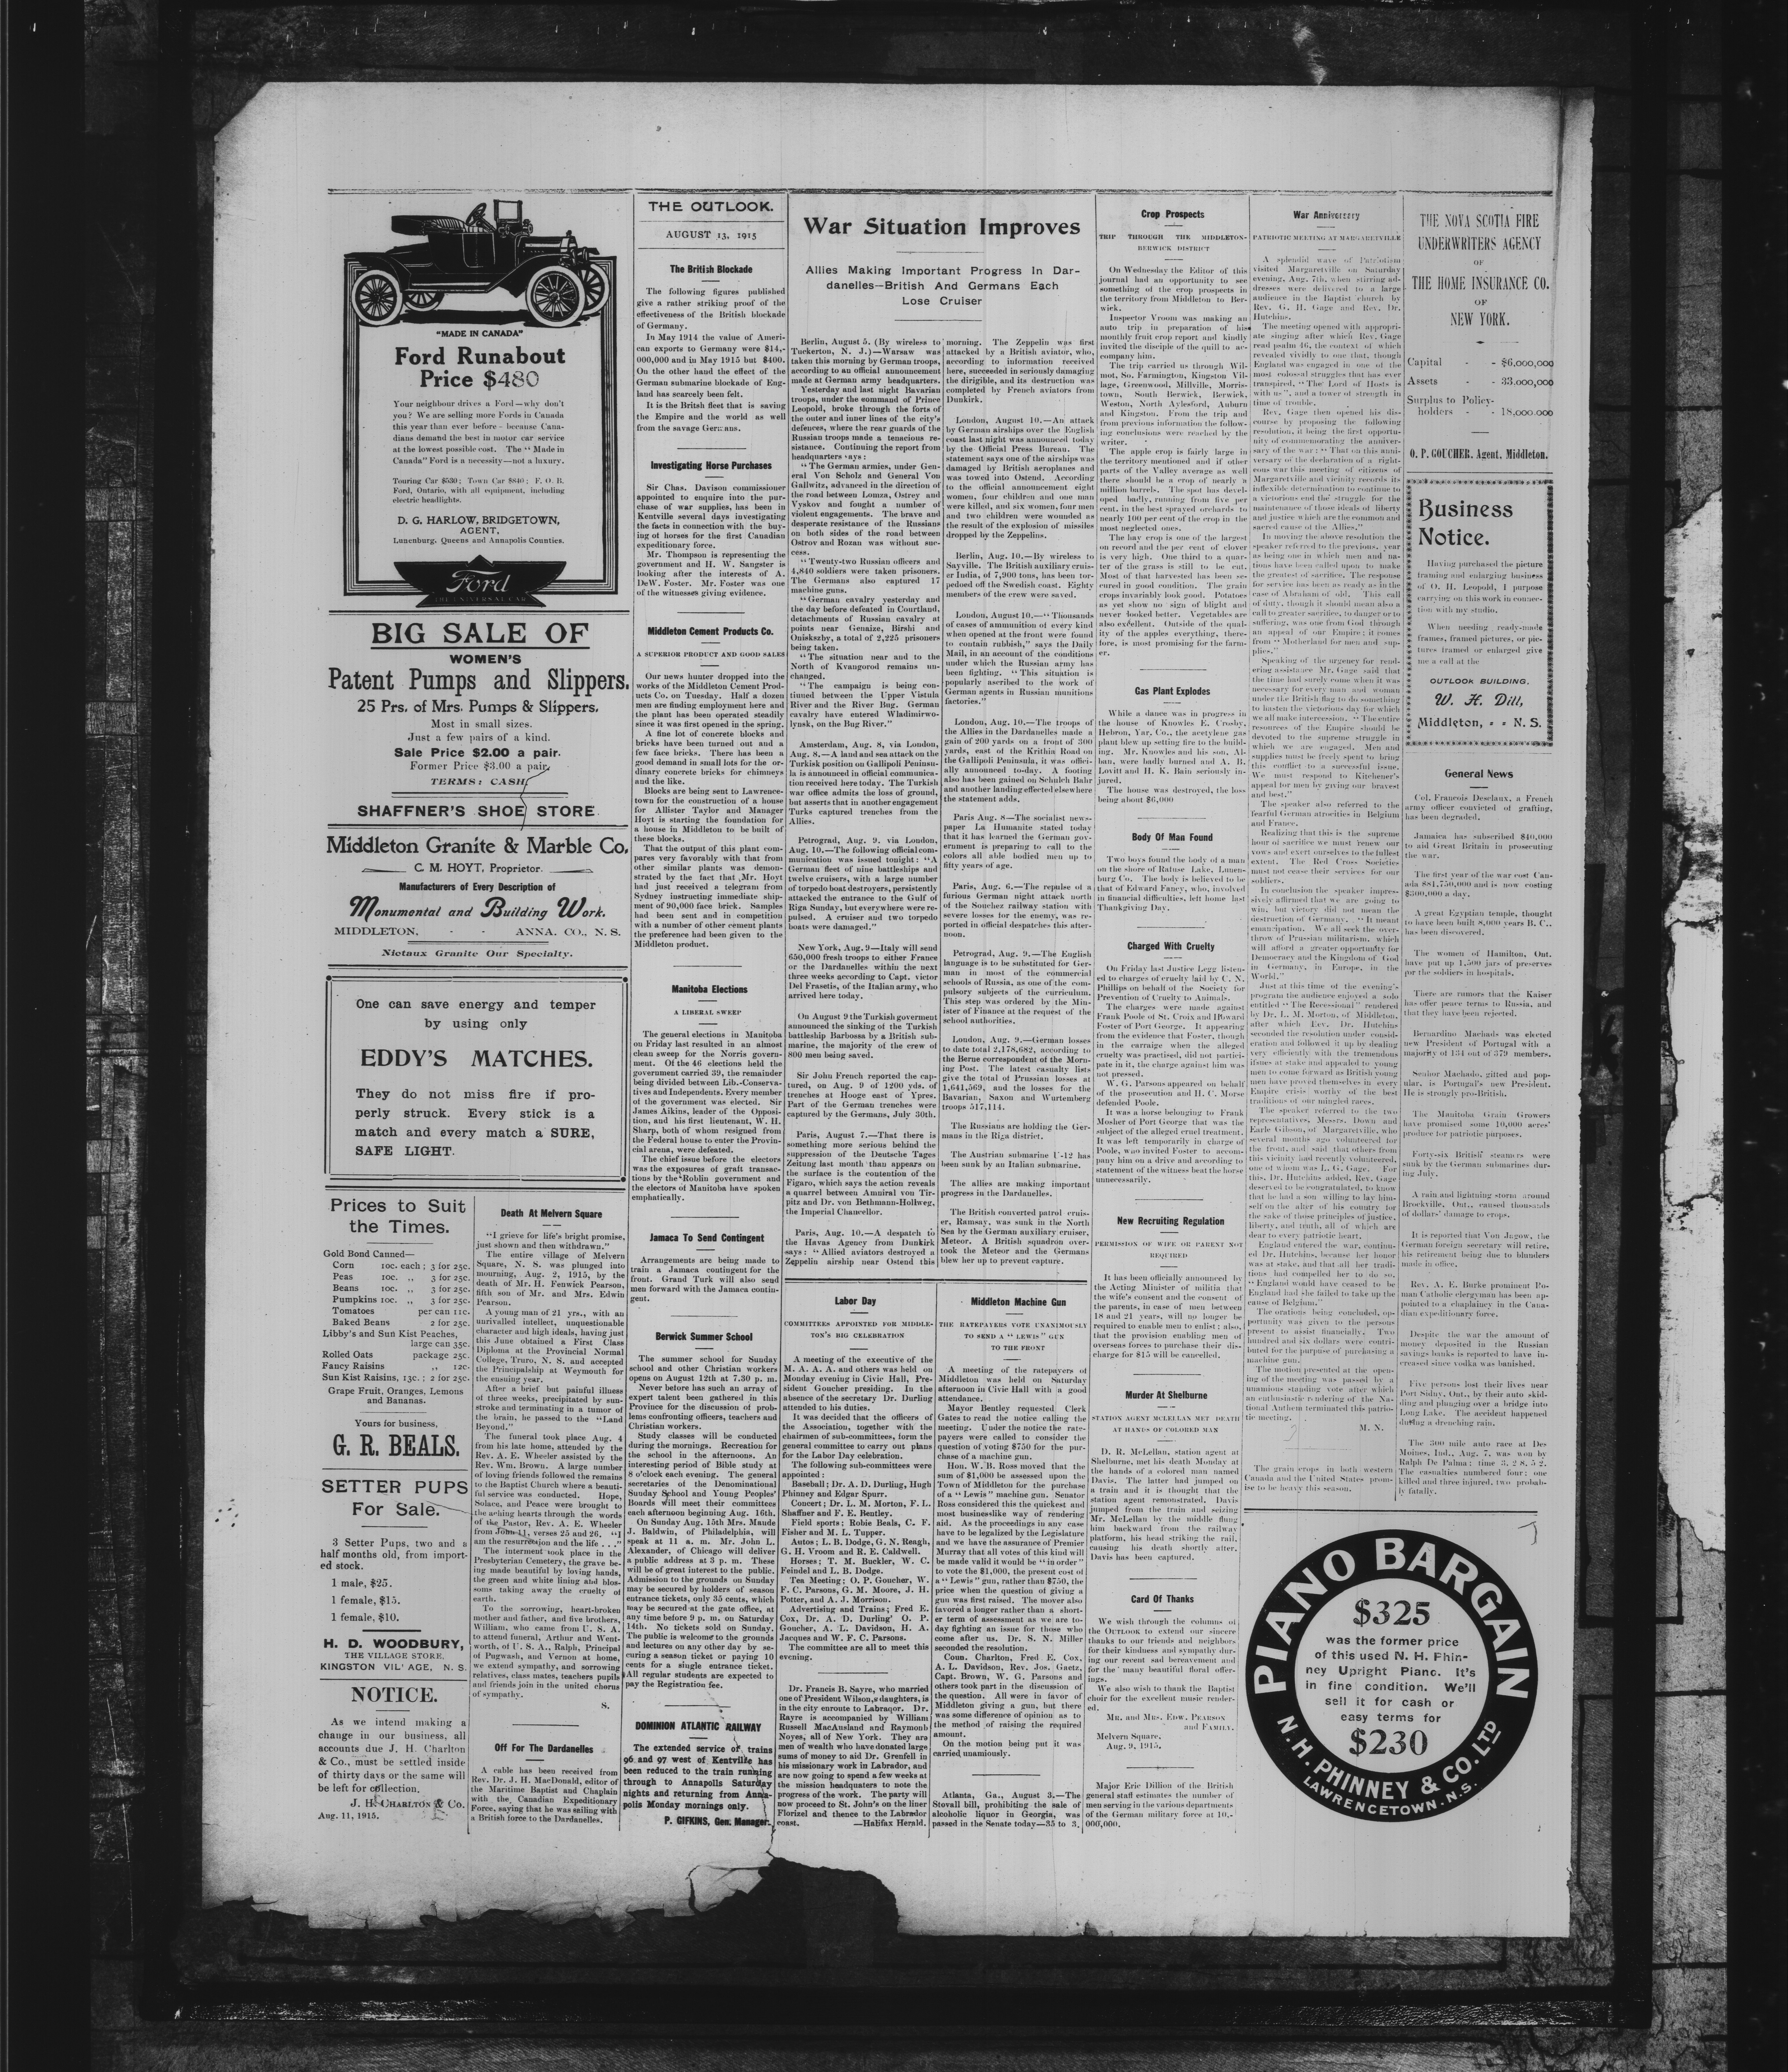 "MADE IN CANADA"
Ford Runabout
Price $480
Your neighbour drives a Ford—why don't
you? We are selling more Fords in Canada
this year than ever before—because Cana-
dians demand the best in motor car service
at the lowest possible cost. The "Made in
Canada" Ford is a necessity—not a luxury.
Touring Car $530; Town Car $840; F. O. B.
Ford, Ontario, with all equipment, including
electric headlights.
D. G. HARLOW, BRIDGETOWN,
AGENT,
Lunenburg, Queens and Annapolis Counties.
Ford
THE UNIVERSAL CAR
BIG SALE OF
WOMEN'S
Patent Pumps and Slippers.
25 Prs. of Mrs. Pumps & Slippers.
Most in small sizes.
Just a few pairs of a kind.
Sale Price $2.00 a pair.
Former Price $3.00 a pair.
TERMS: CASH
SHAFFNER'S SHOE STORE.
Middleton Granite & Marble Co.
C. M. HOYT, Proprietor.
Manufacturers of Every Description of
Monumental and Building Work.
MIDDLETON, - - ANNA. CO., N. S.
Nictaux Granite Our Specialty.
One can save energy and temper
by using only
EDDY'S MATCHES.
They do not miss fire if pro-
perly struck. Every stick is a
match and every match a SURE,
SAFE LIGHT.
Prices to Suit
the Times.
Gold Bond Canned—
Corn 10c. each; 3 for 25c.
Peas 10c. ,, 3 for 25c.
Beans 10c. ,, 3 for 25c.
Pumpkins 10c. ,, 3 for 25c.
Tomatoes per can 11c.
Baked Beans 2 for 25c.
Libby's and Sun Kist Peaches,
large can 35c.
Rolled Oats package 25c.
Fancy Raisins ,, 12c.
Sun Kist Raisins, 13c.; 2 for 25c.
Grape Fruit, Oranges, Lemons
and Bananas.
Yours for business,
G. R. BEALS.
SETTER PUPS
For Sale.
3 Setter Pups, two and a
half months old, from import-
ed stock.
1 male, $25.
1 female, $15.
1 female, $10.
H. D. WOODBURY,
THE VILLAGE STORE,
KINGSTON VIL'AGE, N. S.
NOTICE.
As we intend making a
change in our business, all
accounts due J. H. Charlton
& Co., must be settled inside
of thirty days or the same will
be left for collection.
J. H. CHARLTON & Co.
Aug. 11, 1915.
Death At Melvern Square
"I grieve for life's bright promise,
just shown and then withdrawn."
The entire village of Melvern
Square, N. S. was plunged into
mourning, Aug. 2, 1915, by the
death of Mr. H. Fenwick Pearson,
fifth son of Mr. and Mrs. Edwin
Pearson.
A young man of 21 yrs., with an
unrivalled intellect, unquestionable
character and high ideals, having just
this June obtained a First Class
Diploma at the Provincial Normal
College, Truro, N. S. and accepted
the Principalship at Weymouth for
the ensuing year.
After a brief but painful illness
of three weeks, precipitated by sun-
stroke and terminating in a tumor of
the brain, he passed to the "Land
Beyond."
The funeral took place Aug. 4
from his late home, attended by the
Rev. A. E. Wheeler assisted by the
Rev. Wm. Brown. A large number
of loving friends followed the remains
to the Baptist Church where a beauti-
ful service was conducted. Hope,
Solace, and Peace were brought to
the aching hearts through the words
of the Pastor, Rev. A. E. Wheeler
from John 11, verses 25 and 26. "I
am the resurrection and the life . . ."
The interment took place in the
Presbyterian Cemetery, the grave be-
ing made beautiful by loving hands,
the green and white lining and blos-
soms taking away the cruelty of
earth.
To the sorrowing, heart-broken
mother and father, and five brothers,
William, who came from U. S. A.
to attend funeral, Arthur and Went-
worth, of U. S. A., Ralph, Principal
of Pugwash, and Vernon at home,
we extend sympathy, and sorrowing
relatives, class mates, teachers pupils
and friends join in the united chorus
of sympathy.
S.
Off For The Dardanelles
A cable has been received from
Rev. Dr. J. H. MacDonald, editor of
the Maritime Baptist and Chaplain
with the Canadian Expeditionary
Force, saying that he was sailing with
a British force to the Dardanelles.
THE OUTLOOK.
AUGUST 13, 1915
The British Blockade
The following figures published
give a rather striking proof of the
effectiveness of the British blockade
of Germany.
In May 1914 the value of Ameri-
can exports to Germany were $14,-
000,000 and in May 1915 but $400.
On the other hand the effect of the
German submarine blockade of Eng-
land has scarcely been felt.
It is the British fleet that is saving
the Empire and the world as well
from the savage Germans.
Investigating Horse Purchases
Sir Chas. Davison commissioner
appointed to enquire into the pur-
chase of war supplies, has been in
Kentville several days investigating
the facts in connection with the buy-
ing of horses for the first Canadian
expeditionary force.
Mr. Thompson is representing the
government and H. W. Sangster is
looking after the interests of A.
DeW. Foster. Mr. Foster was one
of the witnesses giving evidence.
Middleton Cement Products Co.
A SUPERIOR PRODUCT AND GOOD SALES
Our news hunter dropped into the
works of the Middleton Cement Prod-
ucts Co. on Tuesday. Half a dozen
men are finding employment here and
the plant has been operated steadily
since it was first opened in the spring.
A fine lot of concrete blocks and
bricks have been turned out and a
few face bricks. There has been a
good demand in small lots for the or-
dinary concrete bricks for chimneys
and the like.
Blocks are being sent to Lawrence-
town for the construction of a house
for Allister Taylor and Manager
Hoyt is starting the foundation for
a house in Middleton to be built of
these blocks.
That the output of this plant com-
pares very favorably with that from
other similar plants was demon-
strated by the fact that Mr. Hoyt
had just received a telegram from
Sydney instructing immediate ship-
ment of 90,000 face brick. Samples
had been sent and in competition
with a number of other cement plants
the preference had been given to the
Middleton product.
Manitoba Elections
A LIBERAL SWEEP
The general elections in Manitoba
on Friday last resulted in an almost
clean sweep for the Norris govern-
ment. Of the 46 elections held the
government carried 39, the remainder
being divided between Lib.-Conserva-
tives and Independents. Every member
of the government was elected. Sir
James Aikins, leader of the Opposi-
tion, and his first lieutenant, W. H.
Sharp, both of whom resigned from
the Federal house to enter the Provin-
cial arena, were defeated.
The chief issue before the electors
was the exposures of graft transac-
tions by the Roblin government and
the electors of Manitoba have spoken
emphatically.
Jamaca To Send Contingent
Arrangements are being made to
train a Jamaca contingent for the
front. Grand Turk will also send
men forward with the Jamaca contin-
gent.
Berwick Summer School
The summer school for Sunday
school and other Christian workers
opens on August 12th at 7.30 p. m.
Never before has such an array of
expert talent been gathered in this
Province for the discussion of prob-
lems confronting officers, teachers and
Christian workers.
Study classes will be conducted
during the mornings. Recreation for
the school in the afternoons. An
interesting period of Bible study at
8 o'clock each evening. The general
secretaries of the Denominational
Sunday School and Young Peoples'
Boards will meet their committees
each afternoon beginning Aug. 16th.
On Sunday Aug. 15th Mrs. Maude
J. Baldwin, of Philadelphia, will
speak at 11 a. m. Mr. John L.
Alexander, of Chicago will deliver
a public address at 3 p. m. These
will be of great interest to the public.
Admission to the grounds on Sunday
may be secured by holders of season
entrance tickets, only 35 cents, which
may be secured at the gate office, at
any time before 9 p. m. on Saturday
14th. No tickets sold on Sunday.
The public is welcome to the grounds
and lectures on any other day by se-
curing a season ticket or paying 10
cents for a single entrance ticket.
All regular students are expected to
pay the Registration fee.
DOMINION ATLANTIC RAILWAY
The extended service of trains
96 and 97 west of Kentville has
been reduced to the train running
through to Annapolis Saturday
nights and returning from Anna-
polis Monday mornings only.
P. GIFKINS, Gen. Manager.
War Situation Improves
Allies Making Important Progress In Dar-
danelles—British And Germans Each
Lose Cruiser
Berlin, August 5. (By wireless to
Tuckerton, N. J.)—Warsaw was
taken this morning by German troops,
according to an official announcement
made at German army headquarters.
Yesterday and last night Bavarian
troops, under the command of Prince
Leopold, broke through the forts of
the outer and inner lines of the city's
defences, where the rear guards of the
Russian troops made a tenacious re-
sistance. Continuing the report from
headquarters says:
"The German armies, under Gen-
eral Von Scholz and General Von
Gallwitz, advanced in the direction of
the road between Lomza, Ostrey and
Vyskov and fought a number of
violent engagements. The brave and
desperate resistance of the Russians
on both sides of the road between
Ostrov and Rozan was without suc-
cess.
"Twenty-two Russian officers and
4,840 soldiers were taken prisoners.
The Germans also captured 17
machine guns.
"German cavalry yesterday and
the day before defeated in Courtland,
detachments of Russian cavalry at
points near Genaize, Birshi and
Onikszhy, a total of 2,225 prisoners
being taken.
"The situation near and to the
North of Kvangorod remains un-
changed.
"The campaign is being con-
tinued between the Upper Vistula
River and the River Bug. German
cavalry have entered Wladimirwo-
lynsk, on the Bug River."
Amsterdam, Aug. 8, via London,
Aug. 8.—A land and sea attack on the
Turkisk position on Gallipoli Peninsu-
la is announced in official communica-
tion received here today. The Turkish
war office admits the loss of ground,
but asserts that in another engagement
Turks captured trenches from the
Allies.
Petrograd, Aug. 9, via London,
Aug. 10.—The following official com-
munication was issued tonight: "A
German fleet of nine battleships and
twelve cruisers, with a large number
of torpedo boat destroyers, persistently
attacked the entrance to the Gulf of
Riga Sunday, but everywhere were re-
pulsed. A cruiser and two torpedo
boats were damaged."
New York, Aug. 9—Italy will send
650,000 fresh troops to either France
or the Dardanelles within the next
three weeks according to Capt. victor
Del Frasetis, of the Italian army, who
arrived here today.
On August 9 the Turkish goverment
announced the sinking of the Turkish
battleship Barbossa by a British sub-
marine, the majority of the crew of
800 men being saved.
Sir John French reported the cap-
tured, on Aug. 9 of 1200 yds. of
trenches at Hooge east of Ypres.
Part of the German trenches were
captured by the Germans, July 30th.
Paris, August 7.—That there is
something more serious behind the
suppression of the Deutsche Tages
Zeitung last month than appears on
the surface is the contention of the
Figaro, which says the action reveals
a quarrel between Amniral von Tir-
pitz and Dr. von Bethmann-Hollweg,
the Imperial Chancellor.
Paris, Aug. 10.—A despatch to
the Havas Agency from Dunkirk
says: "Allied aviators destroyed a
Zeppelin airship near Ostend this
morning. The Zeppelin was first
attacked by a British aviator, who,
according to information received
here, succeeded in seriously damaging
the dirigible, and its destruction was
completed by French aviators from
Dunkirk.
London, August 10.—An attack
by German airships over the English
coast last night was announced today
by the Official Press Bureau. The
statement says one of the airships was
damaged by British aeroplanes and
was towed into Ostend. According
to the official announcement eight
women, four children and one man
were killed, and six women, four men
and two children were wounded as
the result of the explosion of missiles
dropped by the Zeppelins.
Berlin, Aug. 10.—By wireless to
Sayville. The British auxiliary cruis-
er India, of 7,900 tons, has been tor-
pedoed off the Swedish coast. Eighty
members of the crew were saved.
London, August 10.—"Thousands
of cases of ammunition of every kind
when opened at the front were found
to contain rubbish," says the Daily
Mail, in an account of the conditions
under which the Russian army has
been fighting. "This situation is
popularly ascribed to the work of
German agents in Russian munitions
factories."
London, Aug. 10.—The troops of
the Allies in the Dardanelles made a
gain of 200 yards on a front of 300
yards, east of the Krithia Road on
the Gallipoli Peninsula, it was offici-
ally announced to-day. A footing
also has been gained on Schuleh Bahr
and another landing effected elsewhere
the statement adds.
Paris Aug. 8—The socialist news-
paper La Humanite stated today
that it has learned the German gov-
ernment is preparing to call to the
colors all able bodied men up to
fifty years of age.
Paris, Aug. 6.—The repulse of a
furious German night attack north
of the Souchez railway station with
severe losses for the enemy, was re-
ported in official dispatches this after-
noon.
Petrograd, Aug. 9.—The English
language is to be substituted for Ger-
man in most of the commercial
schools of Russia, as one of the com-
pulsory subjects of the curriculum.
This step was ordered by the Min-
ister of Finance at the request of the
school authorities.
London, Aug. 9.—German losses
to date total 2,178,682, according to
the Berne correspondent of the Morn-
ing Post. The latest casualty lists
give the total of Prussian losses at
1,641,569, and the losses for the
Bavarian, Saxon and Wurtemberg
troops 517,114.
The Russians are holding the Ger-
mans in the Riga district.
The Austrian submarine U-12 has
been sunk by an Italian submarine.
The allies are making important
progress in the Dardanelles.
The British converted patrol cruis-
er, Ramsay, was sunk in the North
Sea by the German auxiliary cruiser,
Meteor. A British squadron over-
took the Meteor and the Germans
blew her up to prevent capture.
Labor Day
COMMITTEES APPOINTED FOR MIDDLE-
TON'S BIG CELEBRATION
A meeting of the executive of the
M. A. A. A. and others was held on
Monday evening in Civic Hall, Pre-
sident Goucher presiding. In the
absence of the secretary Dr. Durling
attended to his duties.
It was decided that the officers of
the Association, together with the
chairmen of sub-committees, form the
general committee to carry out plans
for the Labor Day celebration.
The following sub-committees were
appointed:
Baseball; Dr. A. D. Durling, Hugh
Phinney and Edgar Spurr.
Concert; Dr. L. M. Morton, F. L.
Shaffner and F. E. Bentley.
Field sports; Robie Beals, C. F.
Fisher and M. L. Tupper.
Autos; L. B. Dodge, G. N. Reagh,
G. H. Vroom and R. E. Caldwell.
Horses; T. M. Buckler, W. C.
Feindel and L. B. Dodge.
Tea Meeting; O. P. Goucher, W.
F. C. Parsons, G. M. Moore, J. H.
Potter, and A. J. Morrison.
Advertising and Trains; Fred E.
Cox, Dr. A. D. Durling' O. P.
Goucher, A. L. Davidson, H. A.
Jacques and W. F. C. Parsons.
The committee are all to meet this
evening.
Dr. Francis B. Sayre, who married
one of President Wilson,s daughters, is
in the city enroute to Labraqor. Dr.
Rayre is accompanied by William
Russell MacAusland and Raymonb
Noyes, all of New York. They are
men of wealth who have donated large
sums of money to aid Dr. Grenfell in
his missionary work in Labrador, and
are now going to spend a few weeks at
the mission headquaters to note the
progress of the work. The party will
now proceed to St. John's on the liner
Florizel and thence to the Labrador
coast. —Halifax Herald.
Middleton Machine Gun
THE RATEPAYERS VOTE UNANIMOUSLY
TO SEND A "LEWIS" GUN
TO THE FRONT
A meeting of the ratepayers of
Middleton was held on Saturday
afternoon in Civic Hall with a good
attendance.
Mayor Bentley requested Clerk
Gates to read the notice calling the
meeting. Under the notice the rate-
payers were called to consider the
question of voting $750 for the pur-
chase of a machine gun.
Hon. W. B. Ross moved that the
sum of $1,000 be assessed upon the
Town of Middleton for the purchase
of a "Lewis" machine gun. Senator
Ross considered this the quickest and
most businesslike way of rendering
aid. As the proceedings in any case
have to be legalized by the Legislature
and we have the assurance of Premier
Murray that all votes of this kind will
be made valid it would be "in order"
to vote the $1,000, the present cost of
a "Lewis" gun, rather than $750, the
price when the question of giving a
gun was first raised. The mover also
favored a longer rather than a short-
er term of assessment as we are to-
day fighting an issue for those who
come after us. Dr. S. N. Miller
seconded the resolution.
Coun. Charlton, Fred E. Cox,
A. L. Davidson, Rev. Jos. Gaetz,
Capt. Brown, W. G. Parsons and
others took part in the discussion of
the question. All were in favor of
Middleton giving a gun, but there
was some difference of opinion as to
the method of raising the required
amount.
On the motion being put it was
carried unamiously.
Atlanta, Ga., August 3.—The
Stovall bill, prohibiting the sale of
alcoholic liquor in Georgia, was
passed in the Senate today—35 to 3.
Crop Prospects
TRIP THROUGH THE MIDDLETON-
BERWICK DISTRICT
On Wednesday the Editor of this
journal had an opportunity to see
something of the crop prospects in
the territory from Middleton to Ber-
wick.
Inspector Vroom was making an
auto trip in preparation of his
monthly fruit crop report and kindly
invited the disciple of the quill to ac-
company him.
The trip carried us through Wil-
mot, So. Farmington, Kingston Vil-
lage, Greenwood, Millville, Morris-
town, South Berwick, Berwick,
Weston, North Aylesford, Auburn
and Kingston. From the trip and
from previous information the follow-
ing conclusions were reached by the
writer.
The apple crop is fairly large in
the territory mentioned and if other
parts of the Valley average as well
there should be a crop of nearly a
million barrels. The spot has devel-
oped badly, running from five per
cent. in the best sprayed orchards to
nearly 100 per cent of the crop in the
most neglected ones.
The hay crop is one of the largest
on record and the per cent of clover
is very high. One third to a quar-
ter of the grass is still to be cut.
Most of that harvested has been se-
cured in good condition. The grain
crops invariably look good. Potatoes
as yet show no sign of blight and
never looked better. Vegetables are
also excellent. Outside of the qual-
ity of the apples everything, there-
fore, is most promising for the farm-
er.
Gas Plant Explodes
While a dance was in progress in
the house of Knowles E. Crosby,
Hebron, Yar, Co., the acetylene gas
plant blew up setting fire to the build-
ing. Mr. Knowles and his son, Al-
ban, were badly burned and A. B.
Lovitt and H. K. Bain seriously in-
jured.
The house was destroyed, the loss
being about $6,000
Body Of Man Found
Two boys found the body of a man
on the shore of Rafuse Lake, Lunen-
burg Co. The body is believed to be
that of Edward Fancy, who, involved
in financial difficulties, left home last
Thanksgiving Day.
Charged With Cruelty
On Friday last Justice Legg listen-
ed to charges of cruelty laid by C. N.
Phillips on behalf of the Society for
Prevention of Cruelty to Animals.
The charges were made against
Frank Poole of St. Croix and Howard
Foster of Port George. It appearing
from the evidence that Foster, though
in the carraige when the alleged
cruelty was practised, did not partici-
pate in it, the charge against him was
not pressed.
W. G. Parsons appeared on behalf
of the prosecution and H. C. Morse
defended Poole.
It was a horse belonging to Frank
Mosher of Port George that was the
subject of the alleged cruel treatment.
It was left temporarily in charge of
Poole, who invited Foster to accom-
pany him on a drive and according to
statement of the witness beat the horse
unnecessarily.
New Recruiting Regulation
PERMISSION OF WIFE OR PARENT NOT
REQUIRED
It has been officially announced by
the Acting Minister of militia that
the wife's consent and the consent of
the parents, in case of men between
18 and 21 years, will no longer be
required to enable men to enlist; also,
that the provision enabling men of
overseas forces to purchase their dis-
charge for $15 will be cancelled.
Murder At Shelburne
STATION AGENT MCLELLAN MET DEATH
AT HANDS OF COLORED MAN
D. R. McLellan, station agent at
Shelburne, met his death Monday at
the hands of a colored man named
Davis. The latter had jumped on
a train and it is thought that the
station agent remonstrated. Davis
jumped from the train and seizing
Mr. McLellan by the middle flung
him backward from the railway
platform, his head striking the rail,
causing his death shortly after.
Davis has been captured.
Card Of Thanks
We wish through the columns of
the OUTLOOK to extend our sincere
thanks to our friends and neighbors
for their kindness and sympathy dur-
ing our recent sad bereavement and
for the many beautiful floral offer-
ings.
We also wish to thank the Baptist
choir for the excellent music render-
ed.
MR. and MRS. EDW. PEARSON
and FAMILY.
Melvern Square,
Aug. 9, 1915.
Major Eric Dillion of the British
general staff estimates the number of
men serving in the various departments
of the German military force at 10,-
000,000.
War Anniversary
PATRIOTIC MEETING AT MARGARETVILLE
A splendid wave of Patriotism
visited Margaretville on Saturday
evening, Aug. 7th, when stirring ad-
dresses were delivered to a large
audience in the Baptist church by
Rev. G. H. Gage and Rev. Dr.
Hutchins.
The meeting opened with appropri-
ate singing after which Rev. Gage
read psalm 46, the context of which
revealed vividly to one that, though
England was engaged in one of the
most colossal struggles that has ever
transpired, "The Lord of Hosts is
with us", and a tower of strength in
time of trouble.
Rev. Gage then opened his dis-
course by proposing the following
resolution, it being the first opportu-
nity of commemorating the anniver-
sary of the war: "That on this anni-
versary of the declaration of a right-
eous war this meeting of citizens of
Margaretville and vicinity records its
inflexible determination to continue to
a victorious end the struggle for the
maintenance of those ideals of liberty
and justice which are the common and
sacred cause of the Allies."
In moving the above resolution the
speaker referred to the previous year
as being one in which men and na-
tions have been called upon to make
the greatest of sacrifice. The response
for service has been as ready as in the
case of Abraham of old. This call
of duty, though it should mean also a
call to greater sacrifice, to danger or to
suffering, was one from God through
an appeal of our Empire; it comes
from "Motherland for men and sup-
plies."
Speaking of the urgency for rend-
ering assistance Mr. Gage said that
the time had surely come when it was
necessary for every man and woman
under the British flag to do something
to hasten the victorious day for which
we all make intercession. "The entire
resources of the Empire should be
devoted to the supreme struggle in
which we are engaged. Men and
supplies must be freely spent to bring
this conflict to a successful issue.
We must respond to Kitchener's
appeal for men by giving our bravest
and best."
The speaker also referred to the
fearful German atrocities in Belgium
and France.
Realizing that this is the supreme
hour of sacrifice we must renew our
vows and exert ourselves to the fullest
extent. The Red Cross Societies
must not cease their services for our
soldiers.
In conclusion the speaker impres-
sively affirmed that we are going to
win, but victory did not mean the
destruction of Germany. "It meant
emancipation. We all seek the over-
throw of Prussian militarism, which
will afford a greater opportunity for
Democracy and the Kingdom of God
in Germany, in Europe, in the
World."
Just at this time of the evening's
program the audience enjoyed a solo
entitled "The Recessional" rendered
by Dr. L. M. Morton, of Middleton,
after which Eev. Dr. Hutchins
seconded the resolution under consid-
eration and followed it up by dealing
very efficiently with the tremendous
issues at stake and appealed to young
men to come forward as British young
men have proved themselves in every
Empire crisis worthy of the best
traditions of our mingled races.
The speaker referred to the two
representatives, Messrs. Down and
Earle Gibson, of Margaretville, who
several months ago volunteered for
the front, and said that others from
this vicinity had recently volunteered,
one of whom was L. G. Gage. For
this, Dr. Hutchins added, Rev. Gage
deserved to be congratulated, to know
that he had a son willing to lay him-
self on the alter of his country for
the sake of those principles of justice,
liberty, and truth, all of which are
dear to every patriotic heart.
England entered the war, continu-
ed Dr. Hutchins, because her honor
was at stake, and that all her tradi-
tions had compelled her to do so.
"England would have ceased to be
England had she failed to take up the
cause of Belgium."
The orations being concluded, op-
portunity was given to the persons
present to assist financially. Two
hundred and six dollars were contri-
buted for the purpose of purchasing a
machine gun.
The motion presented at the open-
ing of the meeting was passed by a
unanimous standing vote after which
an enthusiastic rendering of the Na-
tional Anthem terminated this patrio-
tic meeting.
M. N.
The grain crops in both western
Canada and the United States prom-
ise to be heavy this season.
THE NOVA SCOTIA FIRE
UNDERWRITERS AGENCY
OF
THE HOME INSURANCE CO.
OF
NEW YORK.
Capital - - $6,000,000
Assets - - 33,000,000
Surplus to Policy-
holders - - 18,000,000
O. P. GOUCHER, Agent, Middleton.
Business
Notice.
Having purchased the picture
framing and enlarging business
of O. H. Leopold, I purpose
carrying on this work in connec-
tion with my studio.
When needing ready-made
frames, framed pictures, or pic-
tures framed or enlarged give
me a call at the
OUTLOOK BUILDING.
W. H. Dill,
Middleton, - - N. S.
General News
Col. Francois Desclaux, a French
army officer convicted of grafting,
has been degraded.
Jamaica has subscribed $40,000
to aid Great Britain in prosecuting
the war.
The first year of the war cost Can-
ada $81,750,000 and is now costing
$300,000 a day.
A great Egyptian temple, thought
to have been built 8,000 years B. C.,
has been discovered.
The women of Hamilton, Ont.
have put up 1,500 jars of preserves
for the soldiers in hospitals.
There are rumors that the Kaiser
has offer peace terms to Russia, and
that they have been rejected.
Bernardino Machado was elected
new President of Portugal with a
majority of 134 out of 379 members.
Senhor Machado, gifted and pop-
ular, is Portugal's new President.
He is strongly pro-British.
The Manitoba Grain Growers
have promised some 10,000 acres'
produce for patriotic purposes.
Forty-six British steamers were
sunk by the German submarines dur-
ing July.
A rain and lightning storm around
Brockville, Ont., caused thousands
of dollars' damage to crops.
It is reported that Von Jagow, the
German foreign secretary will retire,
his retirement being due to blunders
made in office.
Rev. A. E. Burke prominent Ro-
man Catholic clergyman has been ap-
pointed to a chaplaincy in the Cana-
dian expeditionary force.
Despite the war the amount of
money deposited in the Russian
savings banks is reported to have in-
creased since vodka was banished.
Five persons lost their lives near
Port Sidny, Ont., by their auto skid-
ding and plunging over a bridge into
Long Lake. The accident happened
during a drenching rain.
The 300 mile auto race at Des
Moines, Ind., Aug. 7, was won by
Ralph De Palma; time 3, 2 8, 5 2.
The casualties numbered four; one
killed and three injured, two probab-
ly fatally.
PIANO BARGAIN
$325
was the former price
of this used N. H. Phin-
ney Upright Piano. It's
in fine condition. We'll
sell it for cash or
easy terms for
$230
N. H. PHINNEY & CO. LTD
LAWRENCETOWN. N.S.